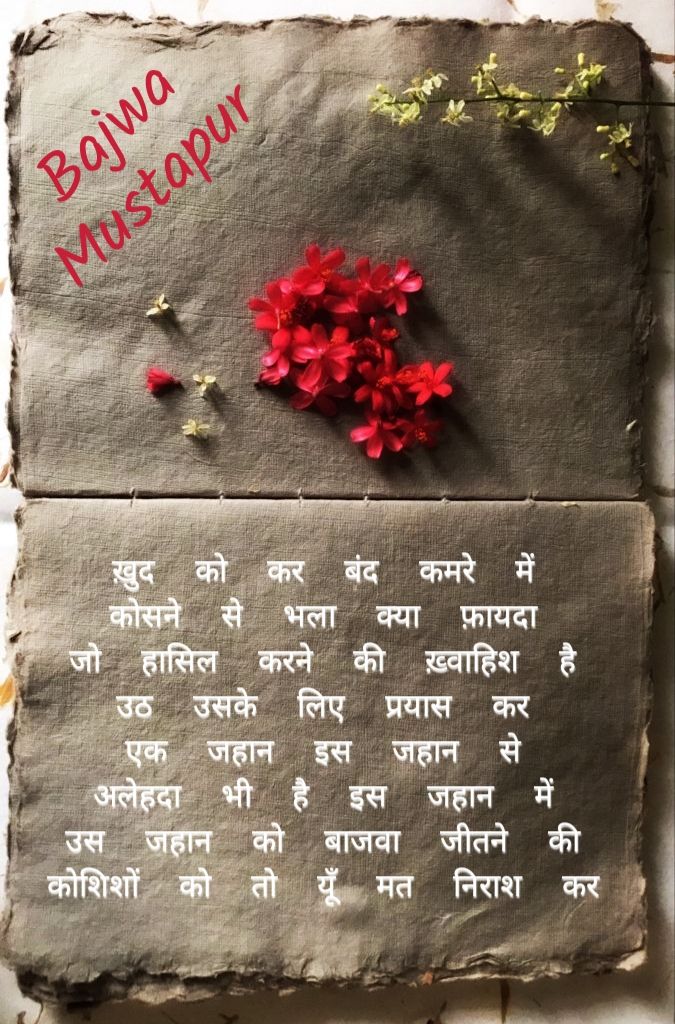 Bajwa
Mustapur
ख़ुद को कर बंद कमरे में
कोसने से भला क्या फ़ायदा
जो हासिल करने की ख़्वाहिश है
उठ उसके लिए प्रयास कर
एक जहान इस जहान से
अलेहदा भी है इस जहान में
उस जहान को बाजवा जीतने की
कोशिशों को तो यूँ मत निराश कर